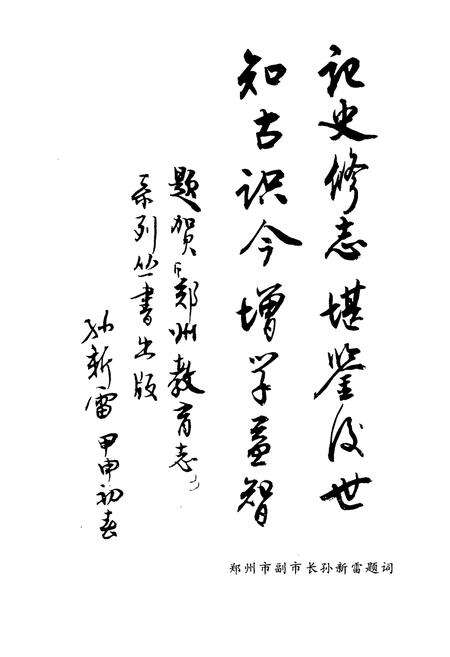 记史修志堪鉴后世
知古识今增学益智
题贺《郑州教育志》
系列丛书出版
孙新雷 甲申初春
郑州市副市长孙新雷题词